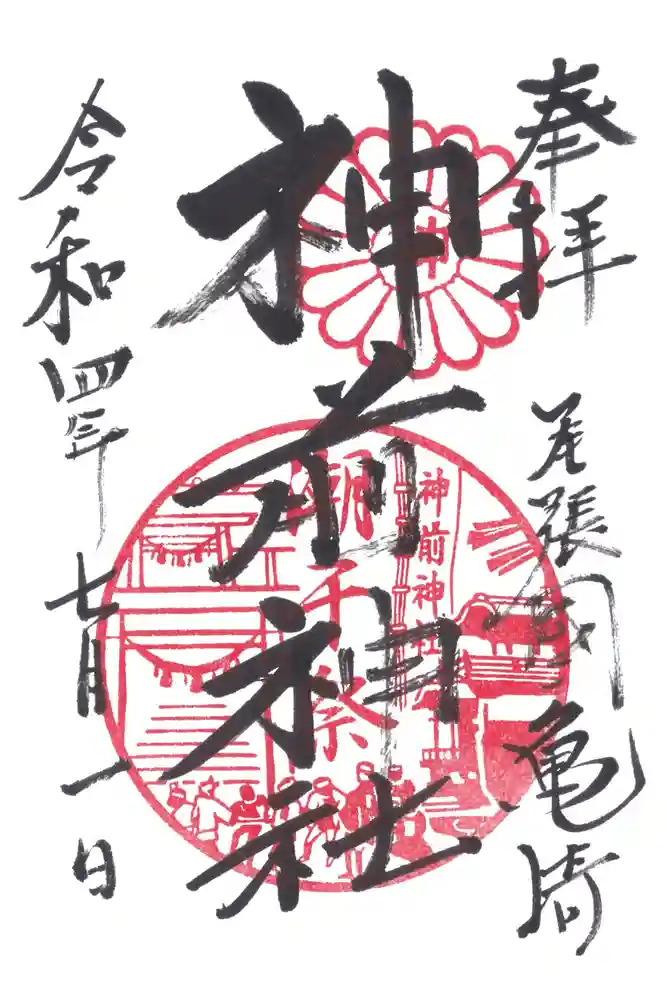 奉拝
尾張國亀崎
神前神社
神前神社
潮干祭
令和四年七月一日